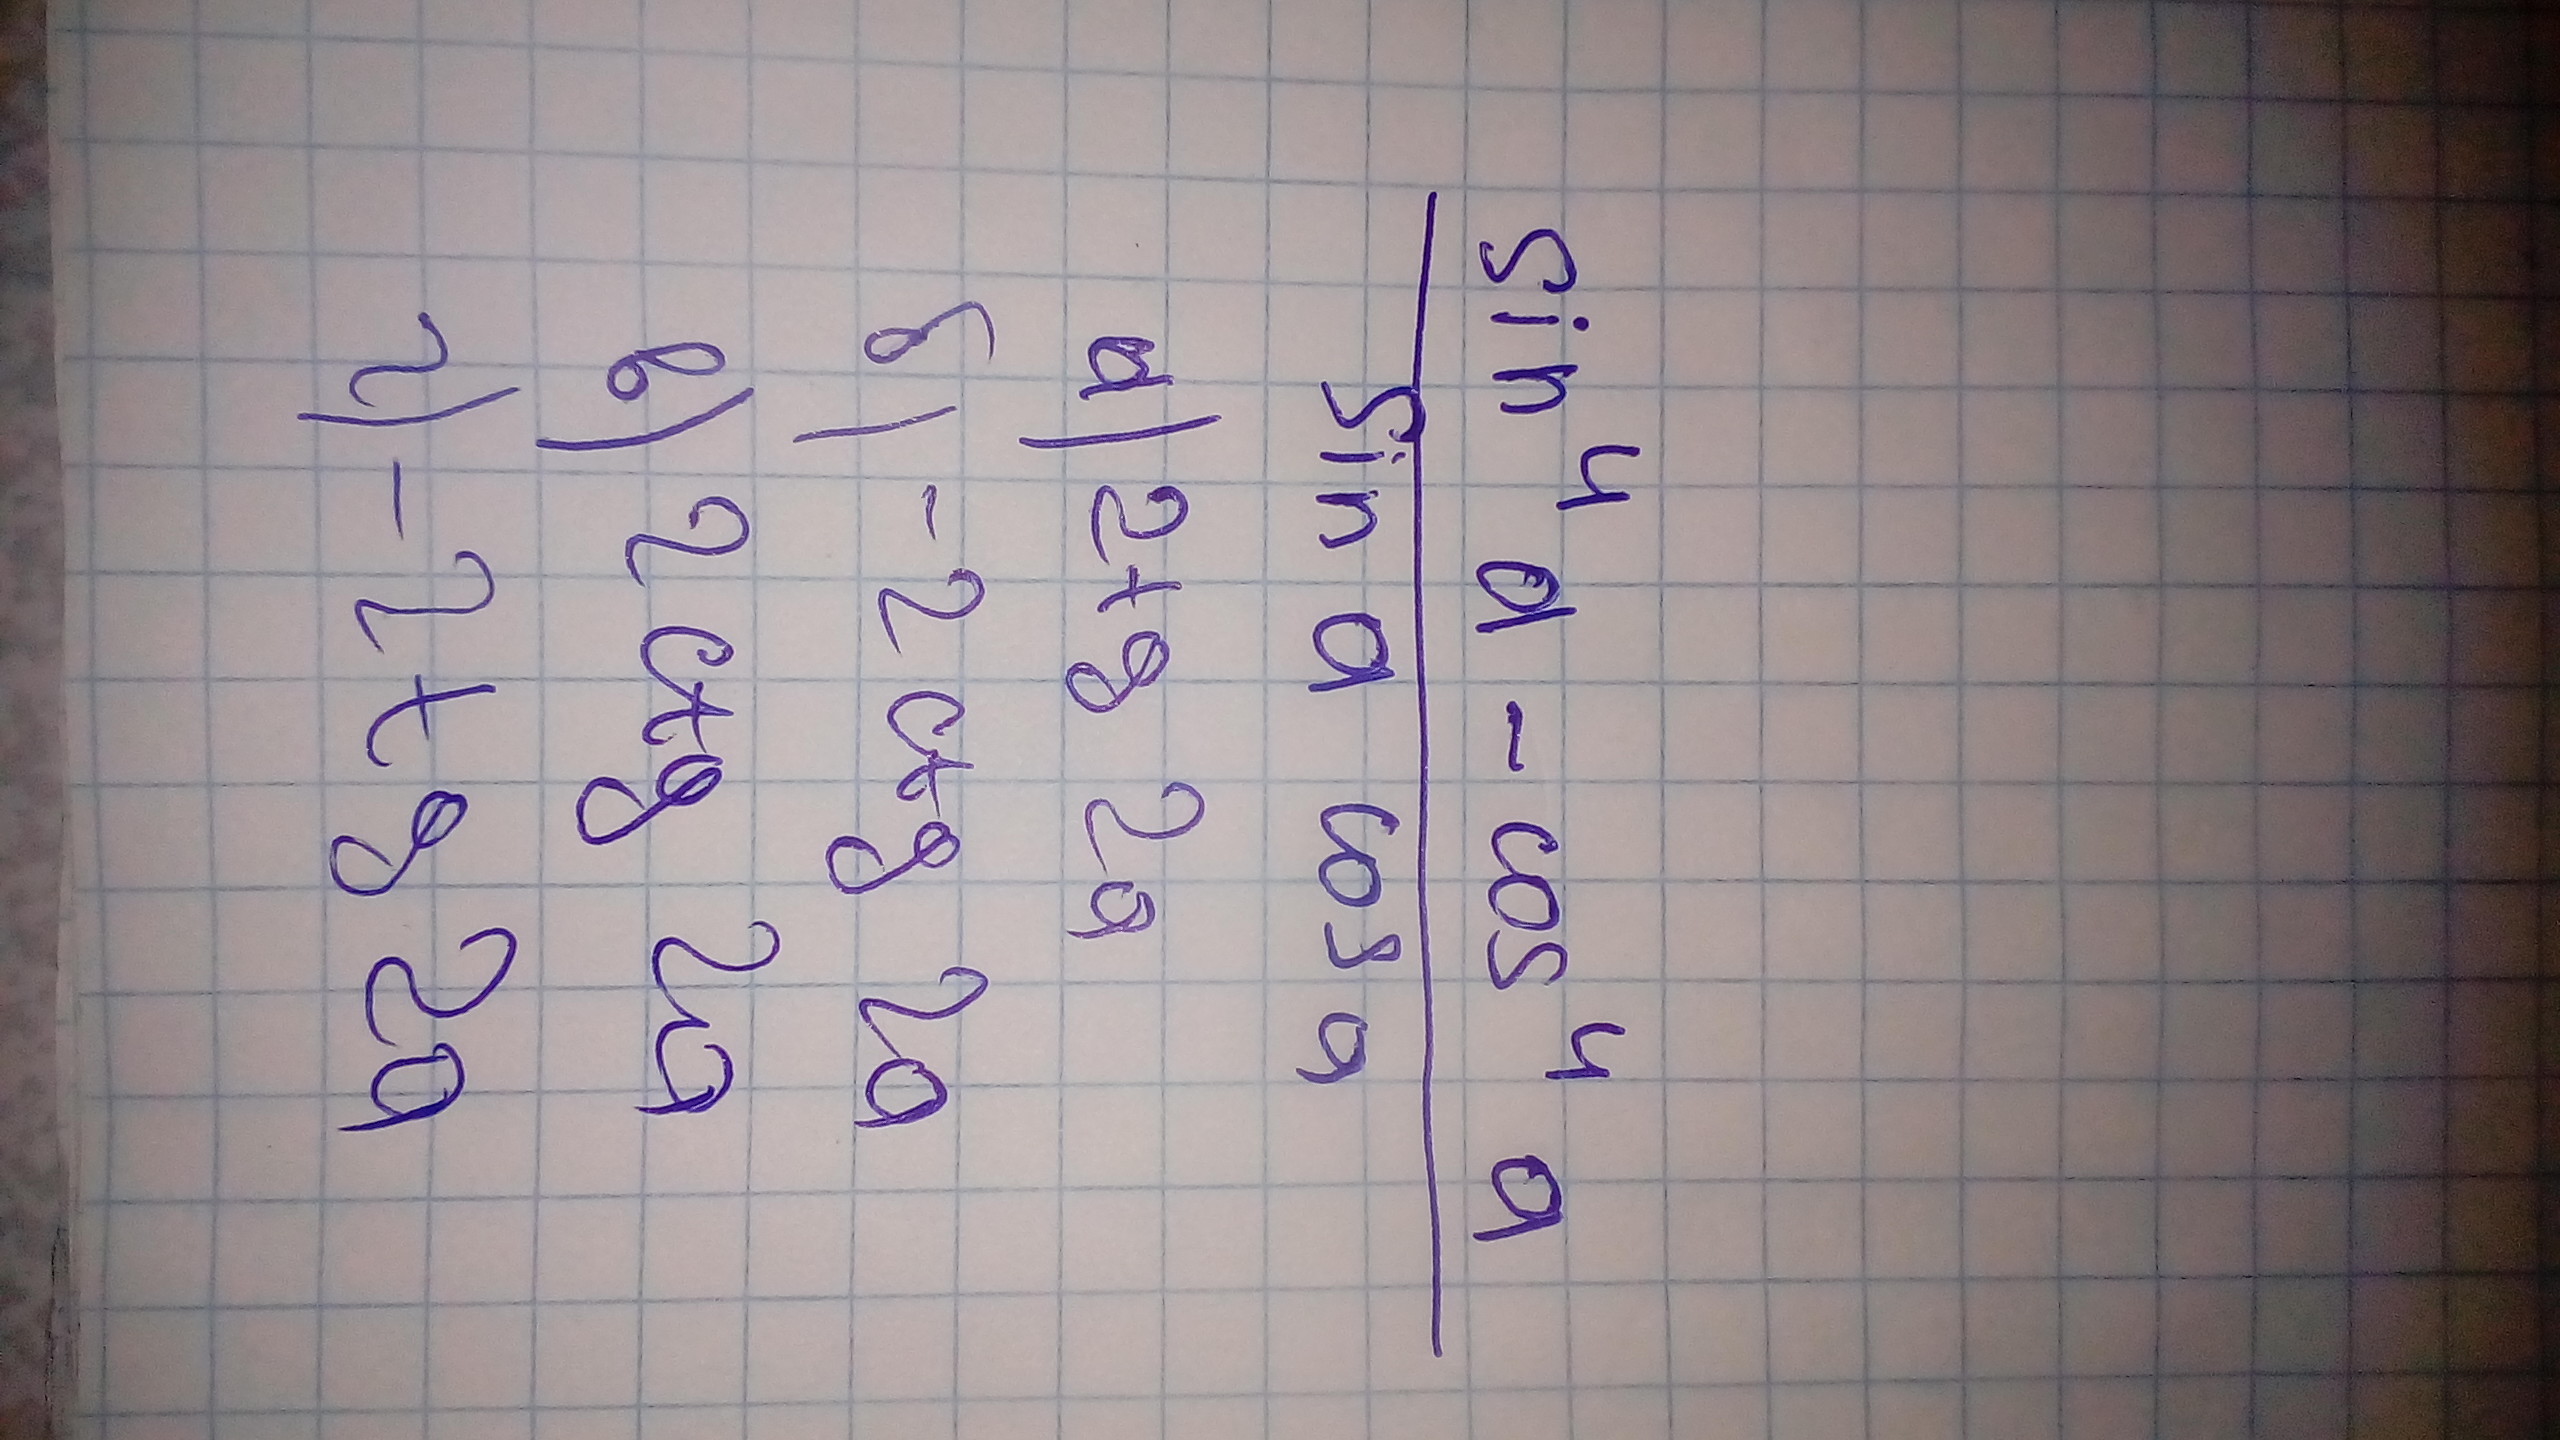 sin⁴ a - cos⁴ a
sin a cos a
а) 2tg 2a
б) -2 ctg 2a
в) 2 ctg 2a
г) -2tg 2a